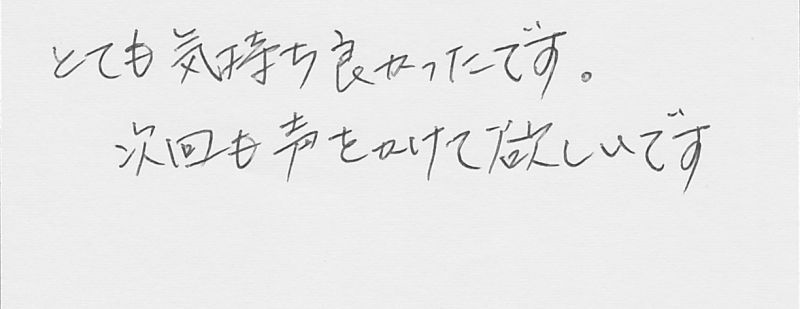 とても気持ち良かったです。
次回も声をかけて欲しいです